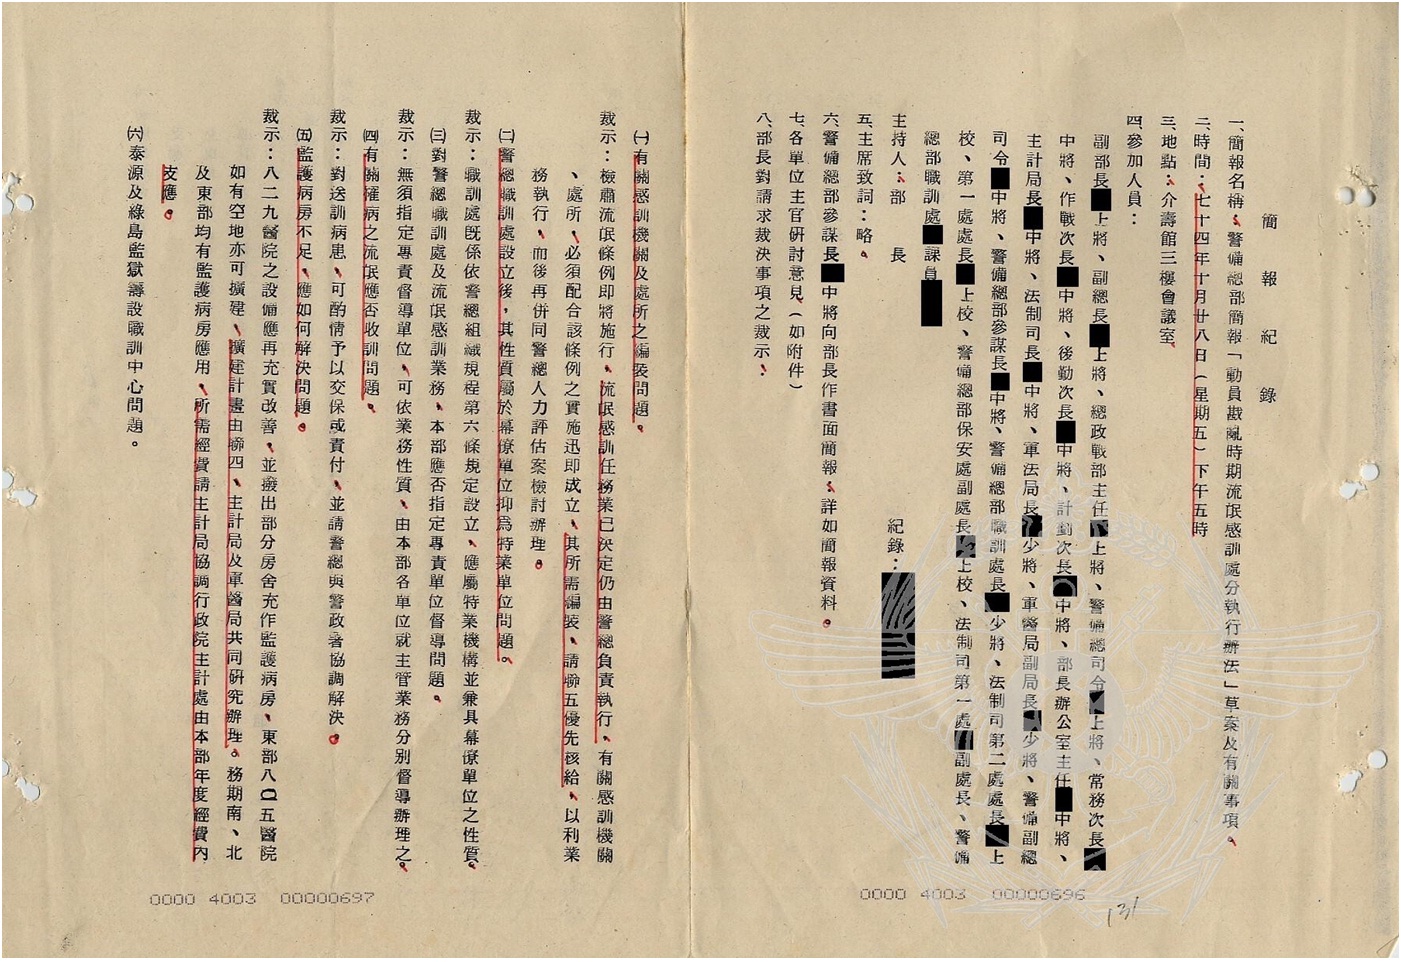 簡報紀錄
一、簡報名稱：警備總部簡報「動員戡亂時期流氓感訓處分執行辦法」草案及有關事項。
二、時間：七十四年十月廿八日（星期五）下午五時
三、地點：介壽館三樓會議室
四、參加人員：
副部長 上將、副總長 上將、總政戰部主任 上將、警備總司令 上將、常務次長
中將、作戰次長 中將、後勤次長 中將、計劃次長 中將、部長辦公室主任 中將、
主計局長 中將、法制司長 中將、軍法局長 少將、軍醫局副局長 少將、警備副總
司令 中將、警備總部參謀長 中將、警備總部職訓處長 少將、法制司第二處處長 上
校、第一處處長 上校、警備總部保安處副處長 上校、法制司第一處 副處長、警備
總部職訓處 課員
主持人：部長 紀錄：
五、主席致詞：略。
六、警備總部參謀長 中將向部長作書面簡報，詳如簡報資料。
七、各單位主官研討意見（如附件）
八、部長對請求裁決事項之裁示：
㈠有關感訓機關及處所之編裝問題。
裁示：檢肅流氓條例即將施行，流氓感訓任務業已決定仍由警總負責執行，有關感訓機關
、處所，必須配合該條例之實施迅即成立，其所需編裝，請聯五優先核給，以利業
務執行，而後再併同警總人力評估案檢討辦理。
㈡警總職訓處設立後，其性質屬於幕僚單位抑為特業單位問題。
裁示：職訓處既係依警總組織規程第六條規定設立，應屬特業機構並兼具幕僚單位之性質。
㈢對警總職訓處及流氓感訓業務，本部應否指定專責單位督導問題。
裁示：無須指定專責督導單位，可依業務性質，由本部各單位就主管業務分別督導辦理之。
㈣有關罹病之流氓應否收訓問題。
裁示：對送訓病患，可酌情予以交保或責付，並請警總與警政署協調解決。
㈤監護病房不足，應如何解決問題。
裁示：八二九醫院之設備應再充實改善，並撥出部分房舍充作監護病房，東部八〇五醫院
如有空地亦可擴建，擴建計畫由聯四、主計局及軍醫局共同研究辦理。務期南、北
及東部均有監護病房應用，所需經費請主計局協調行政院主計處由本部年度經費內
支應。
㈥泰源及綠島監獄籌設職訓中心問題。
0000 4003 00000696
131
0000 4003 00000697